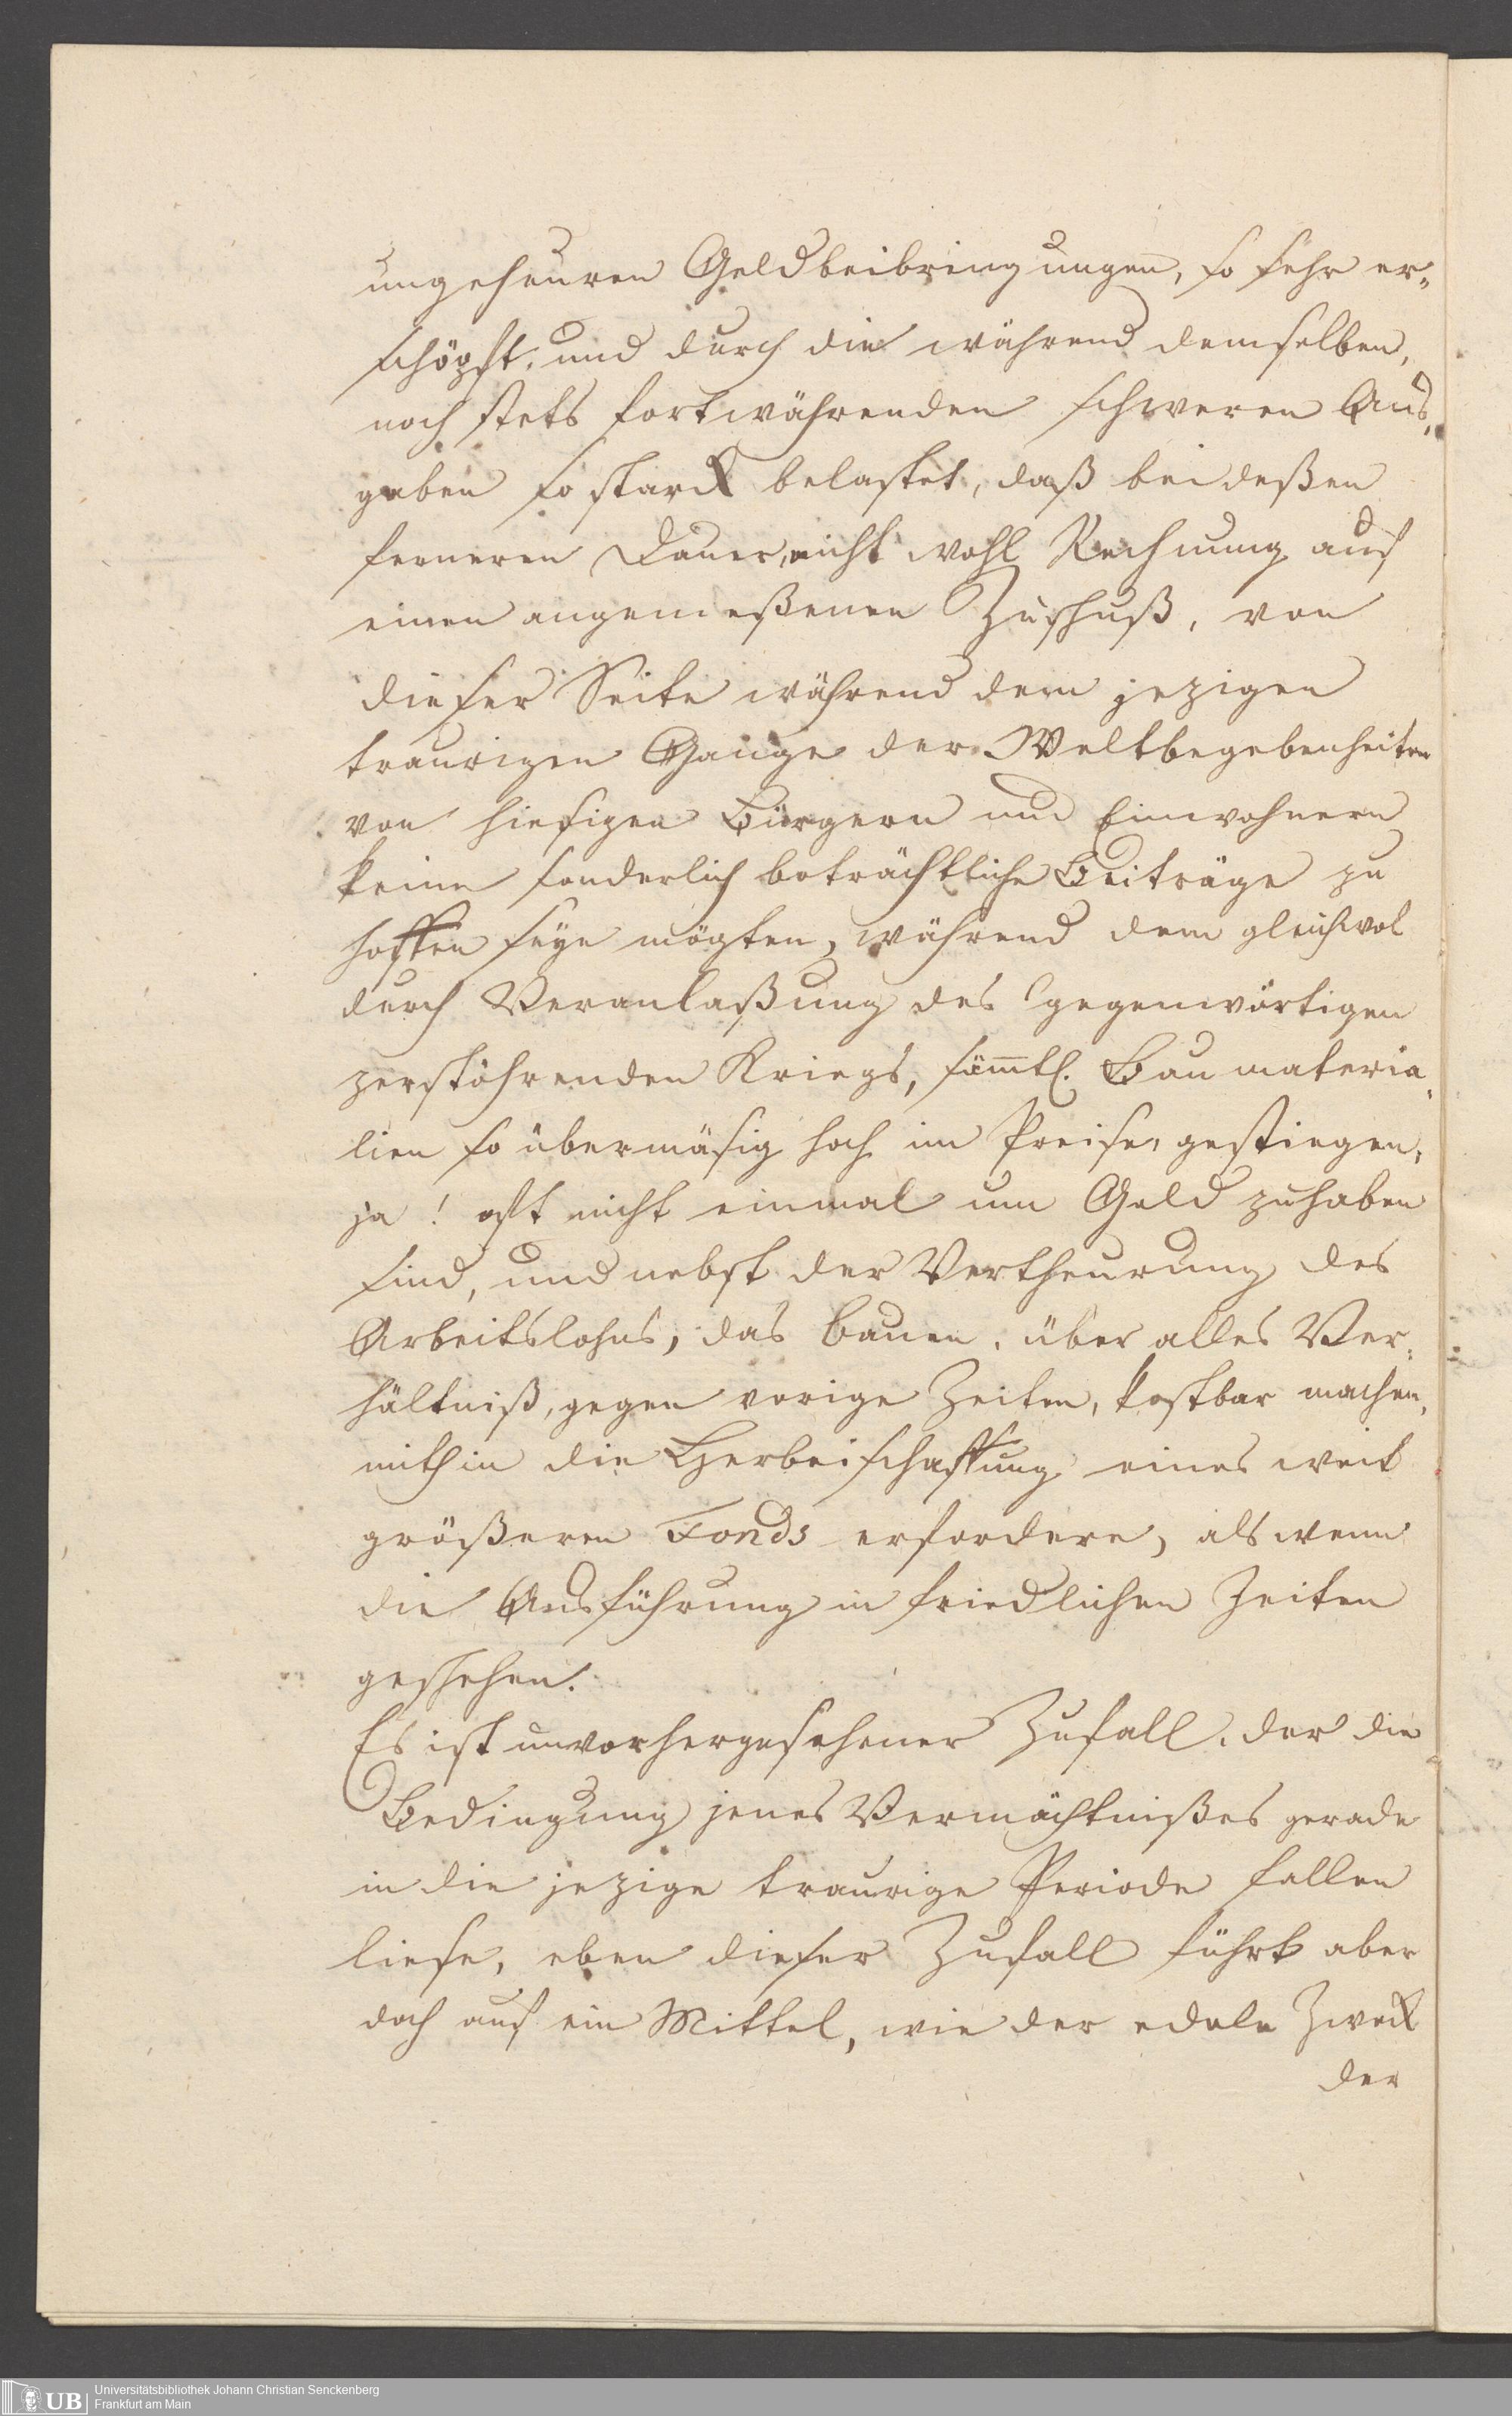 ungeheuren Geldbeibringungen, so sehr er„
schöpft, und durch die während demselben,
noch stets fortwährenden schweren Aus„
gaben so starck belastet, daß bei deßen
ferneren Dauer, nicht wohl Rechnung auf
einen angemeßenen Zuschuß, von
dieser Seite während dem jezigen
traurigen Gange der Weltbegebenheiten
von hiesigen Bürgern und Einwohnern
keine sonderlich beträchtliche Beiträge zu
hoffen seyn mögten, während dem gleichwol
durch Veranlaßung des gegenwärtigen
zerstöhrenden Kriegs, säm̅tl. Baumateria„
lien so übermäsig hoch im Preise, gestiegen,
ja! oft nicht einmal um Geld zuhaben
sind, und nebst der Vertheurung des
Arbeitslohns, das bauen, über alles Ver„
hältniß, gegen vorige Zeiten, kostbar machen,
mithin die Herbeischaffung eines weit
größeren Fonds erfordere, als wenn
die Ausführung in friedlichen Zeiten
geschehen.
Es ist unvorhergesehener Zufall, der die
Bedingung jenes Vermächtnißes gerade
in die jezige traurige Periode fallen
liese, eben dieser Zufall führt aber
doch auf ein Mittel, wie der edele Zweck
der
UB
Universitätsbibliothek Johann Christian Senckenberg
Frankfurt am Main